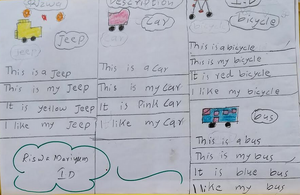 Description
I.D
Jeep
Car
bicycle
This is a Jeep
This is my Jeep
It is yellow Jeep
I like my Jeep
This is a Car
This is my Car
It is Pink Car
I like my Car
This is a bicycle
This is my bicycle
It is red bicycle
I like my bicycle
bus
This is a bus
This is my bus
It is blue bus
I like my bus
I D